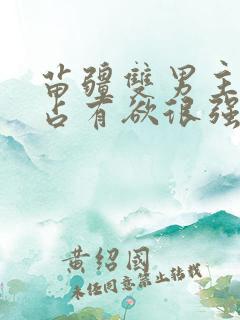 苗疆雙男主
占有欲很强
黄绍國
未经同意禁止转载